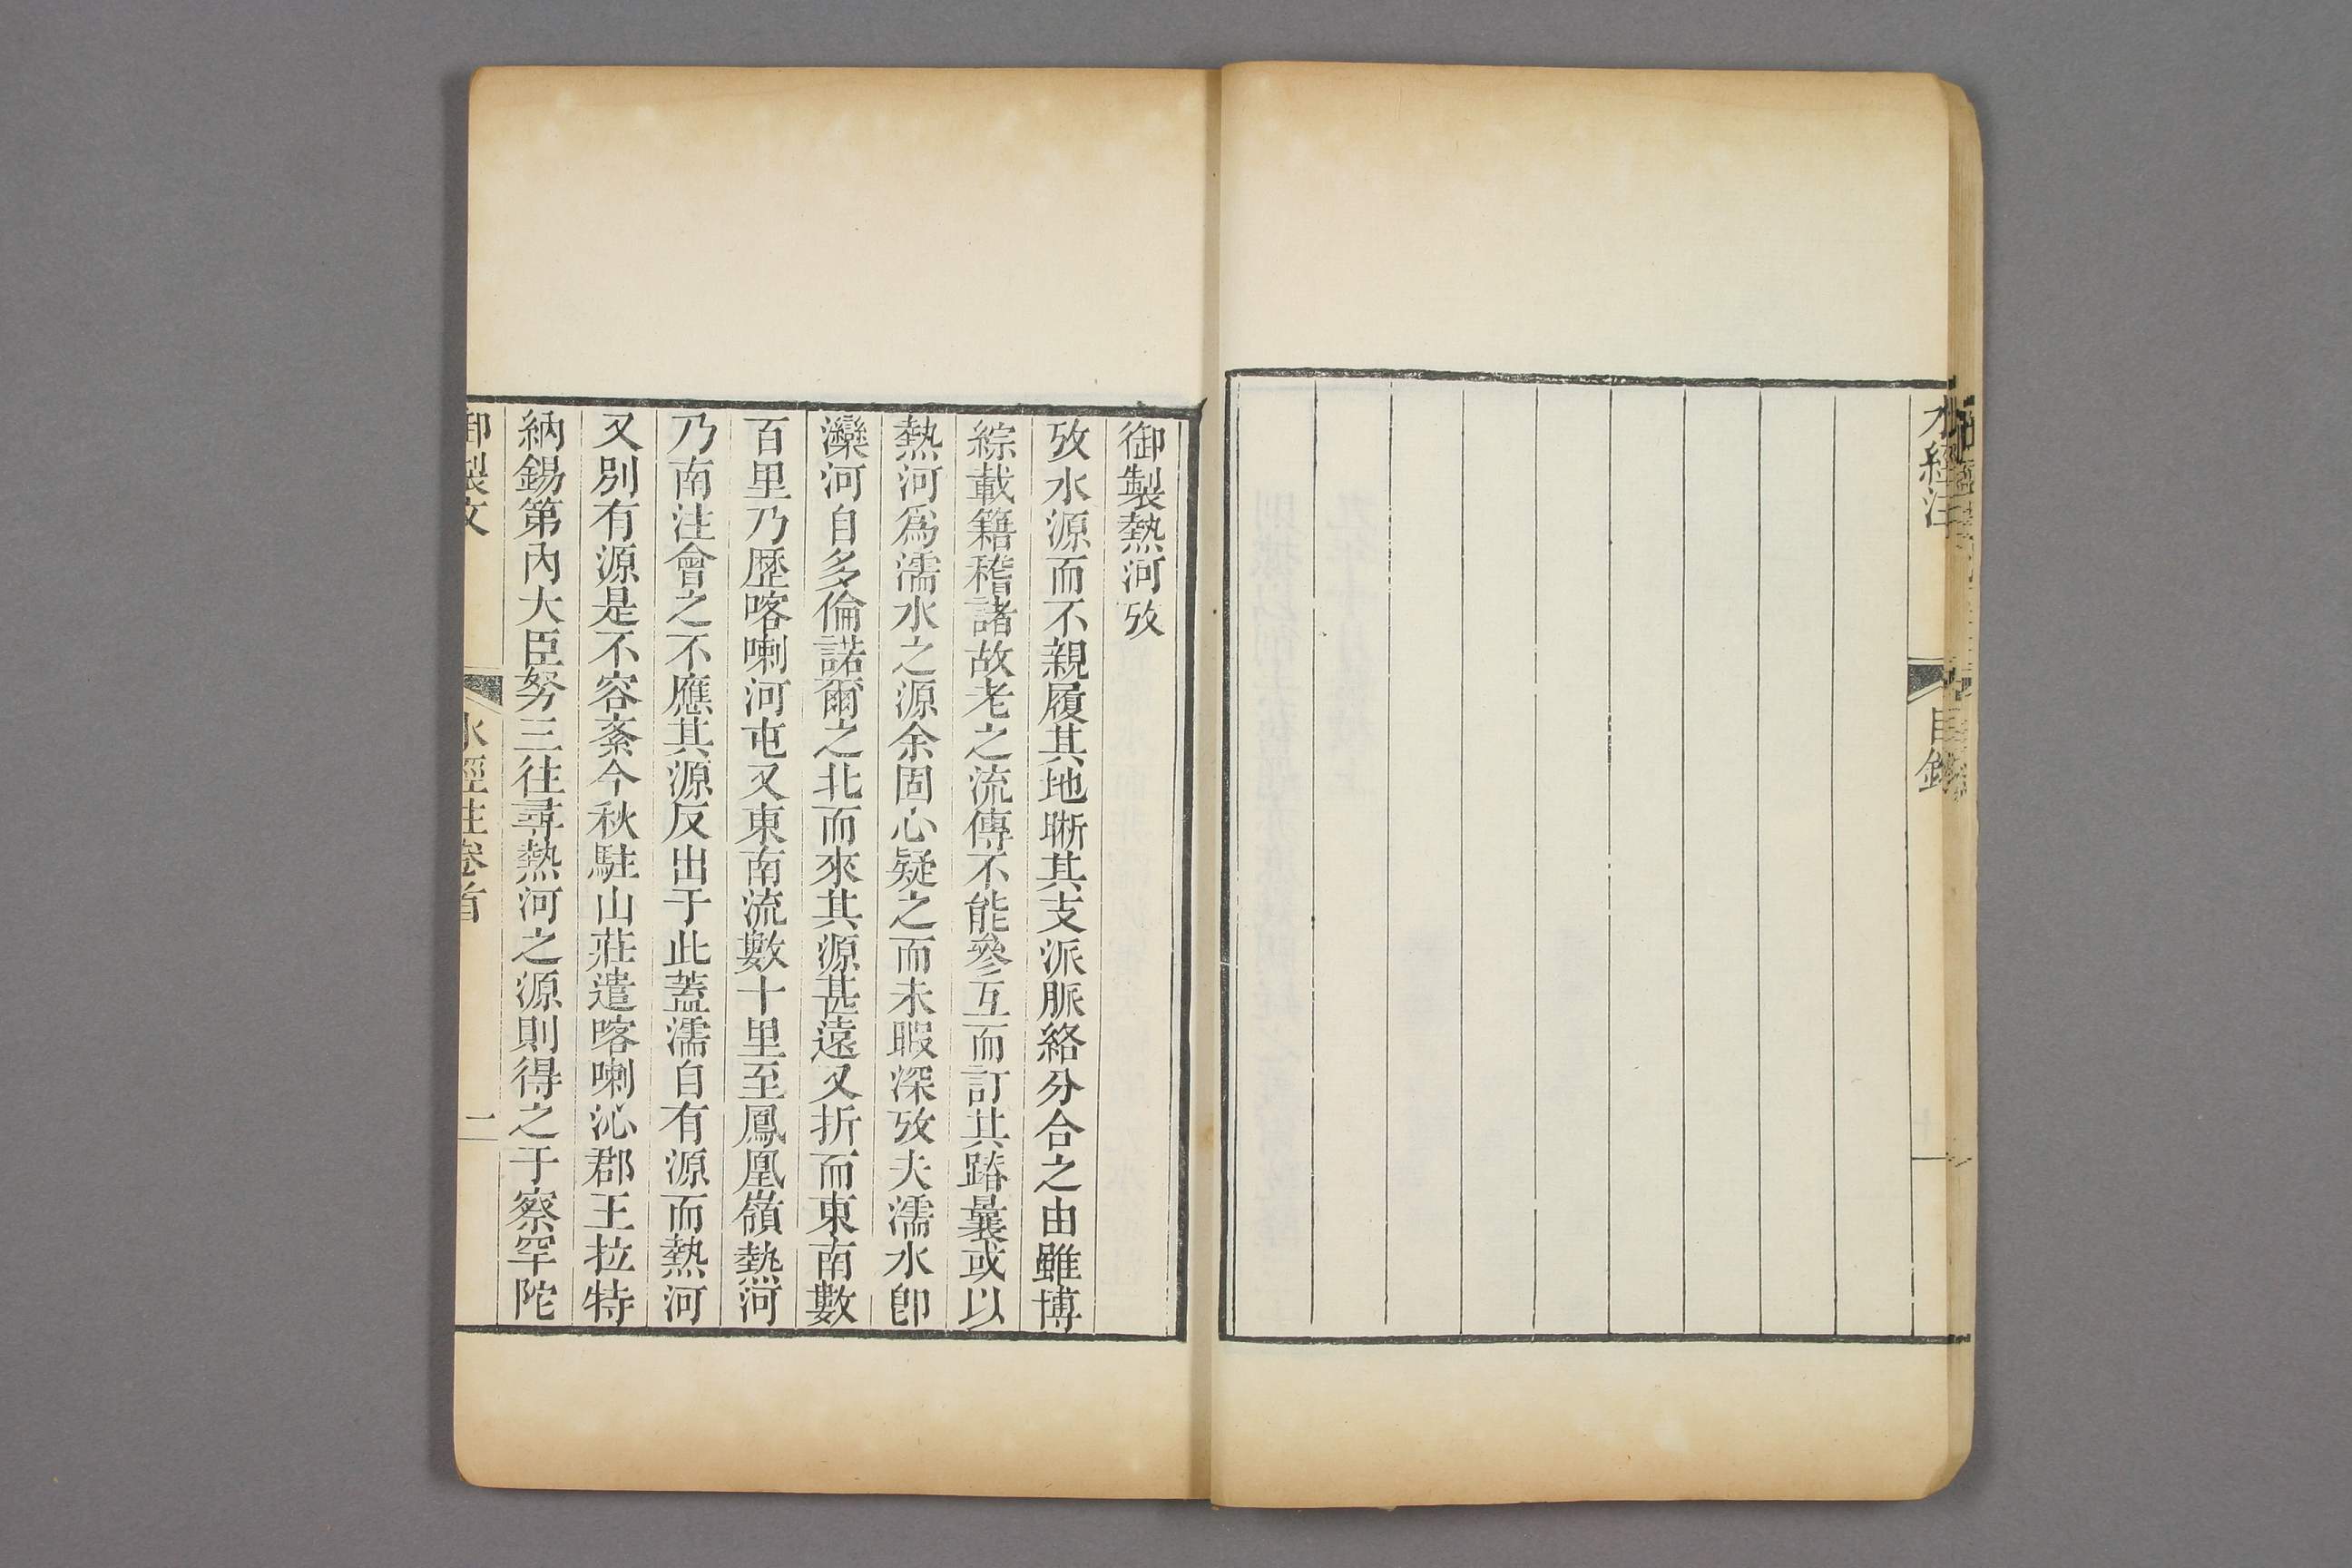 水經注
目錄
御製熱河攷
攷水源而不親履其地晣其支派脈絡分合之由雖博
綜載籍稽諸故老之流傳不能參互而訂其踳曩或以
熱河爲濡水之源余固心疑之而未暇深攷夫濡水卽
灤河自多倫諾爾之北而來其源甚遠又折而東南數
百里乃歷喀喇河屯又東南流數十里至鳳凰嶺熱河
乃南注會之不應其源反出于此蓋濡自有源而熱河
又別有源是不容紊今秋駐山莊遣喀喇沁郡王拉特
納錫第內大臣努三往尋熱河之源則得之于察罕陀
御製文
水經注卷首